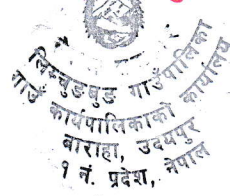 लिम्चुङ्बुङ गाउँपालिका
गाउँ कार्यपालिकाको कार्यालय
बाराहा, उदयपुर
१ नं. प्रदेश, नेपाल